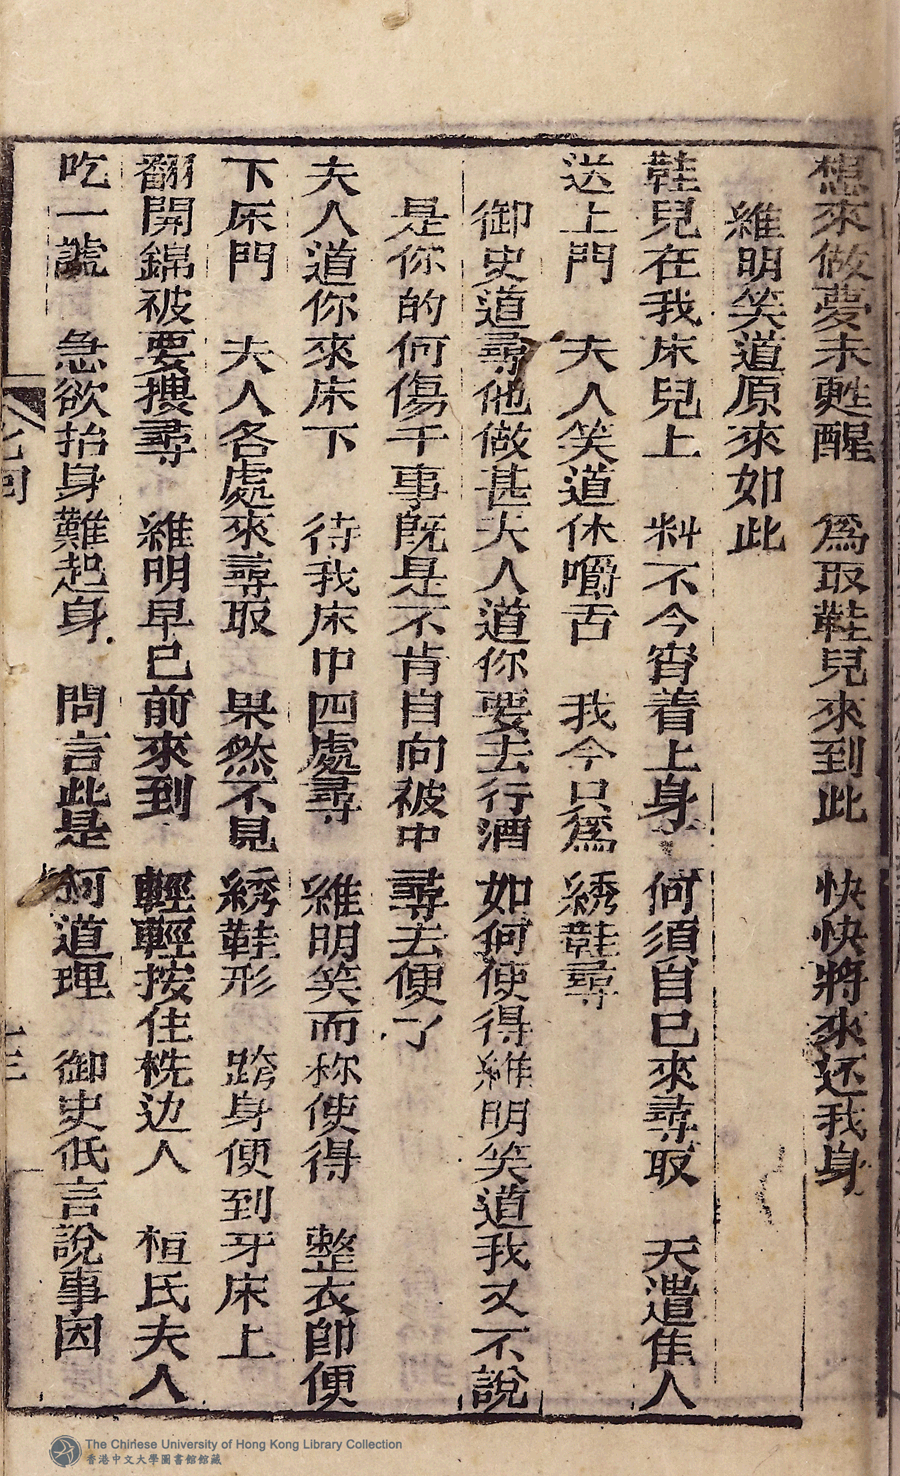 想來做夢未甦醒　爲取鞋兒來到此　快快將來还我身
維明笑道原來如此
鞋兒在我床兒上　料不今宵着上身　何須自己來尋取　天遣佳人
送上門　夫人笑道休嚼舌　我今只爲綉鞋尋
御史道尋他做甚夫人道你要去行酒如何使得維明笑道我又不說
是你的何傷干事旣是不肯自向被中尋去便了
夫人道你來床下　待我床中四處尋　維明笑而称使得　整衣卽便
下床門　夫人各處來尋取　果然不見綉鞋形　跨身便到牙床上
翻開錦被要搜尋　維明早已前來到　輕輕按住桄边人　桓氏夫人
吃一諕　急欲抬身難起身　問言此是何道理　御史低言說事因
七回
The Chinese University of Hong Kong Library Collection
香港中文大學圖書館館藏